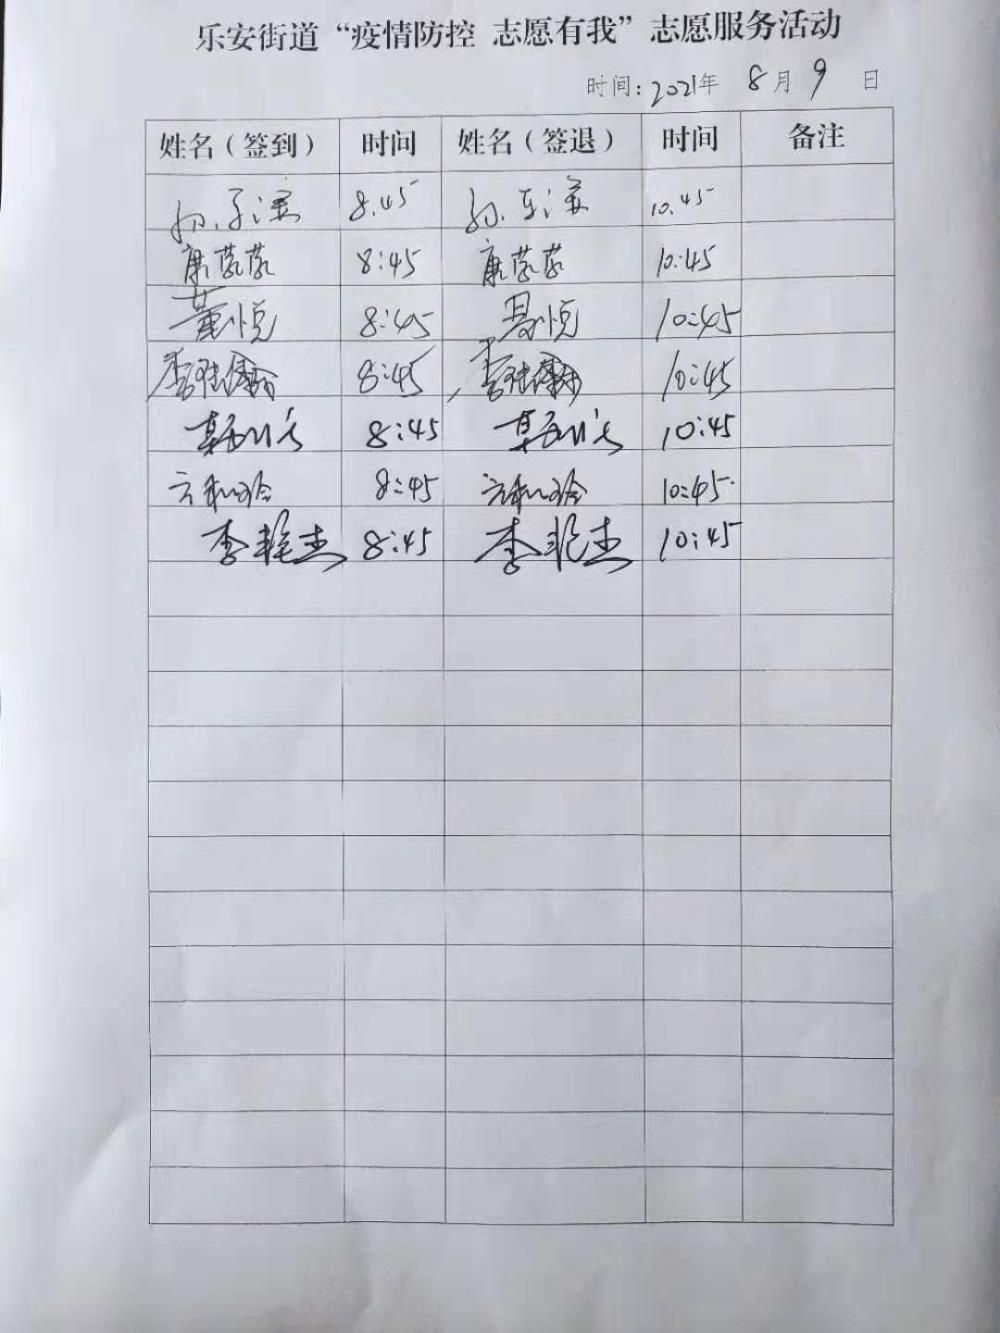 乐安街道“疫情防控 志愿有我”志愿服务活动
时间:2021年 8月 9 日
姓名(签到) 时间 姓名(签退) 时间 备注
8.45 10.45
康蕊蕊 8:45 康蕊蕊 10:45
董悦 8:45 悦 10:45
李 8:45 李 10:45
8:45 10:45
8:45 10:45
李艳杰 8:45 李艳杰 10:45